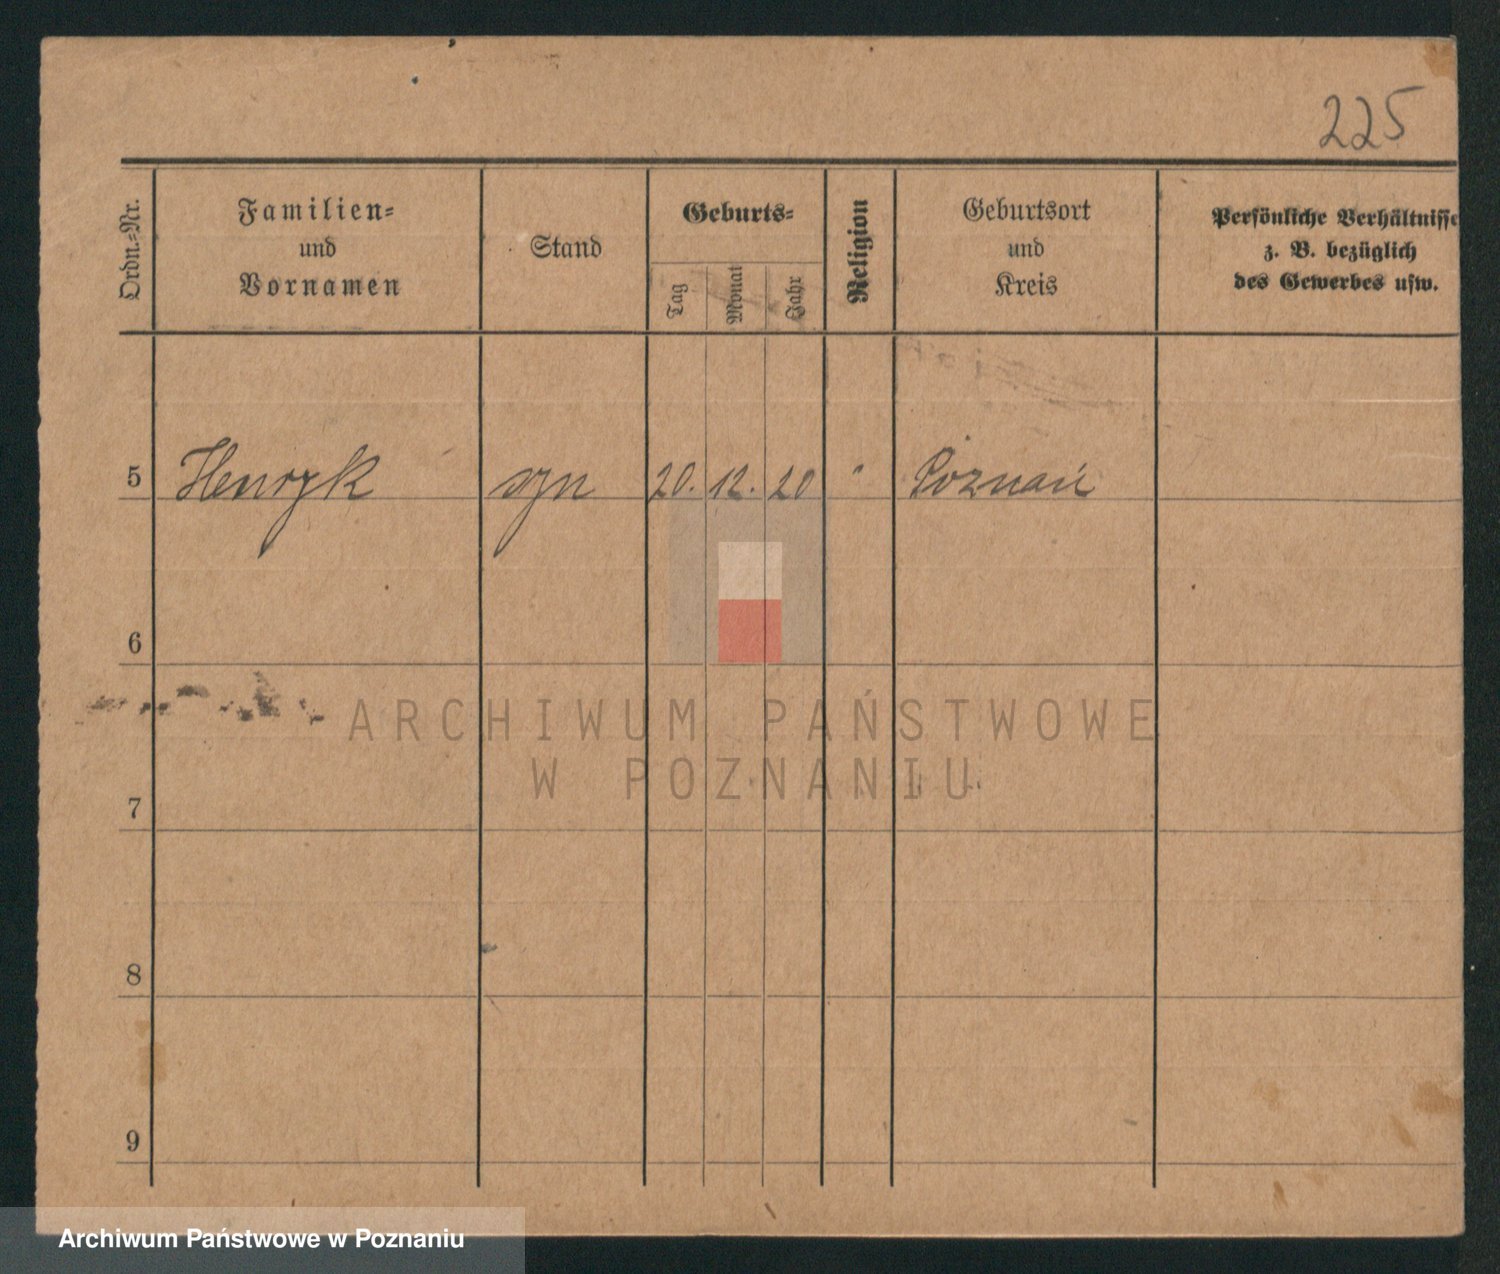 225
Ordn.-Nr.
Familien-
und
Vornamen
Stand
Geburts-
Tag
Monat
Jahr
Religion
Geburtsort
und
Kreis
Persönliche Verhältnisse
z. B. bezüglich
des Gewerbes usw.
5 Henryk syn 20. 12. 20 " Poznań
6
ARCHIWUM PAŃSTWOWE
W POZNANIU
7
8
9
Archiwum Państwowe w Poznaniu